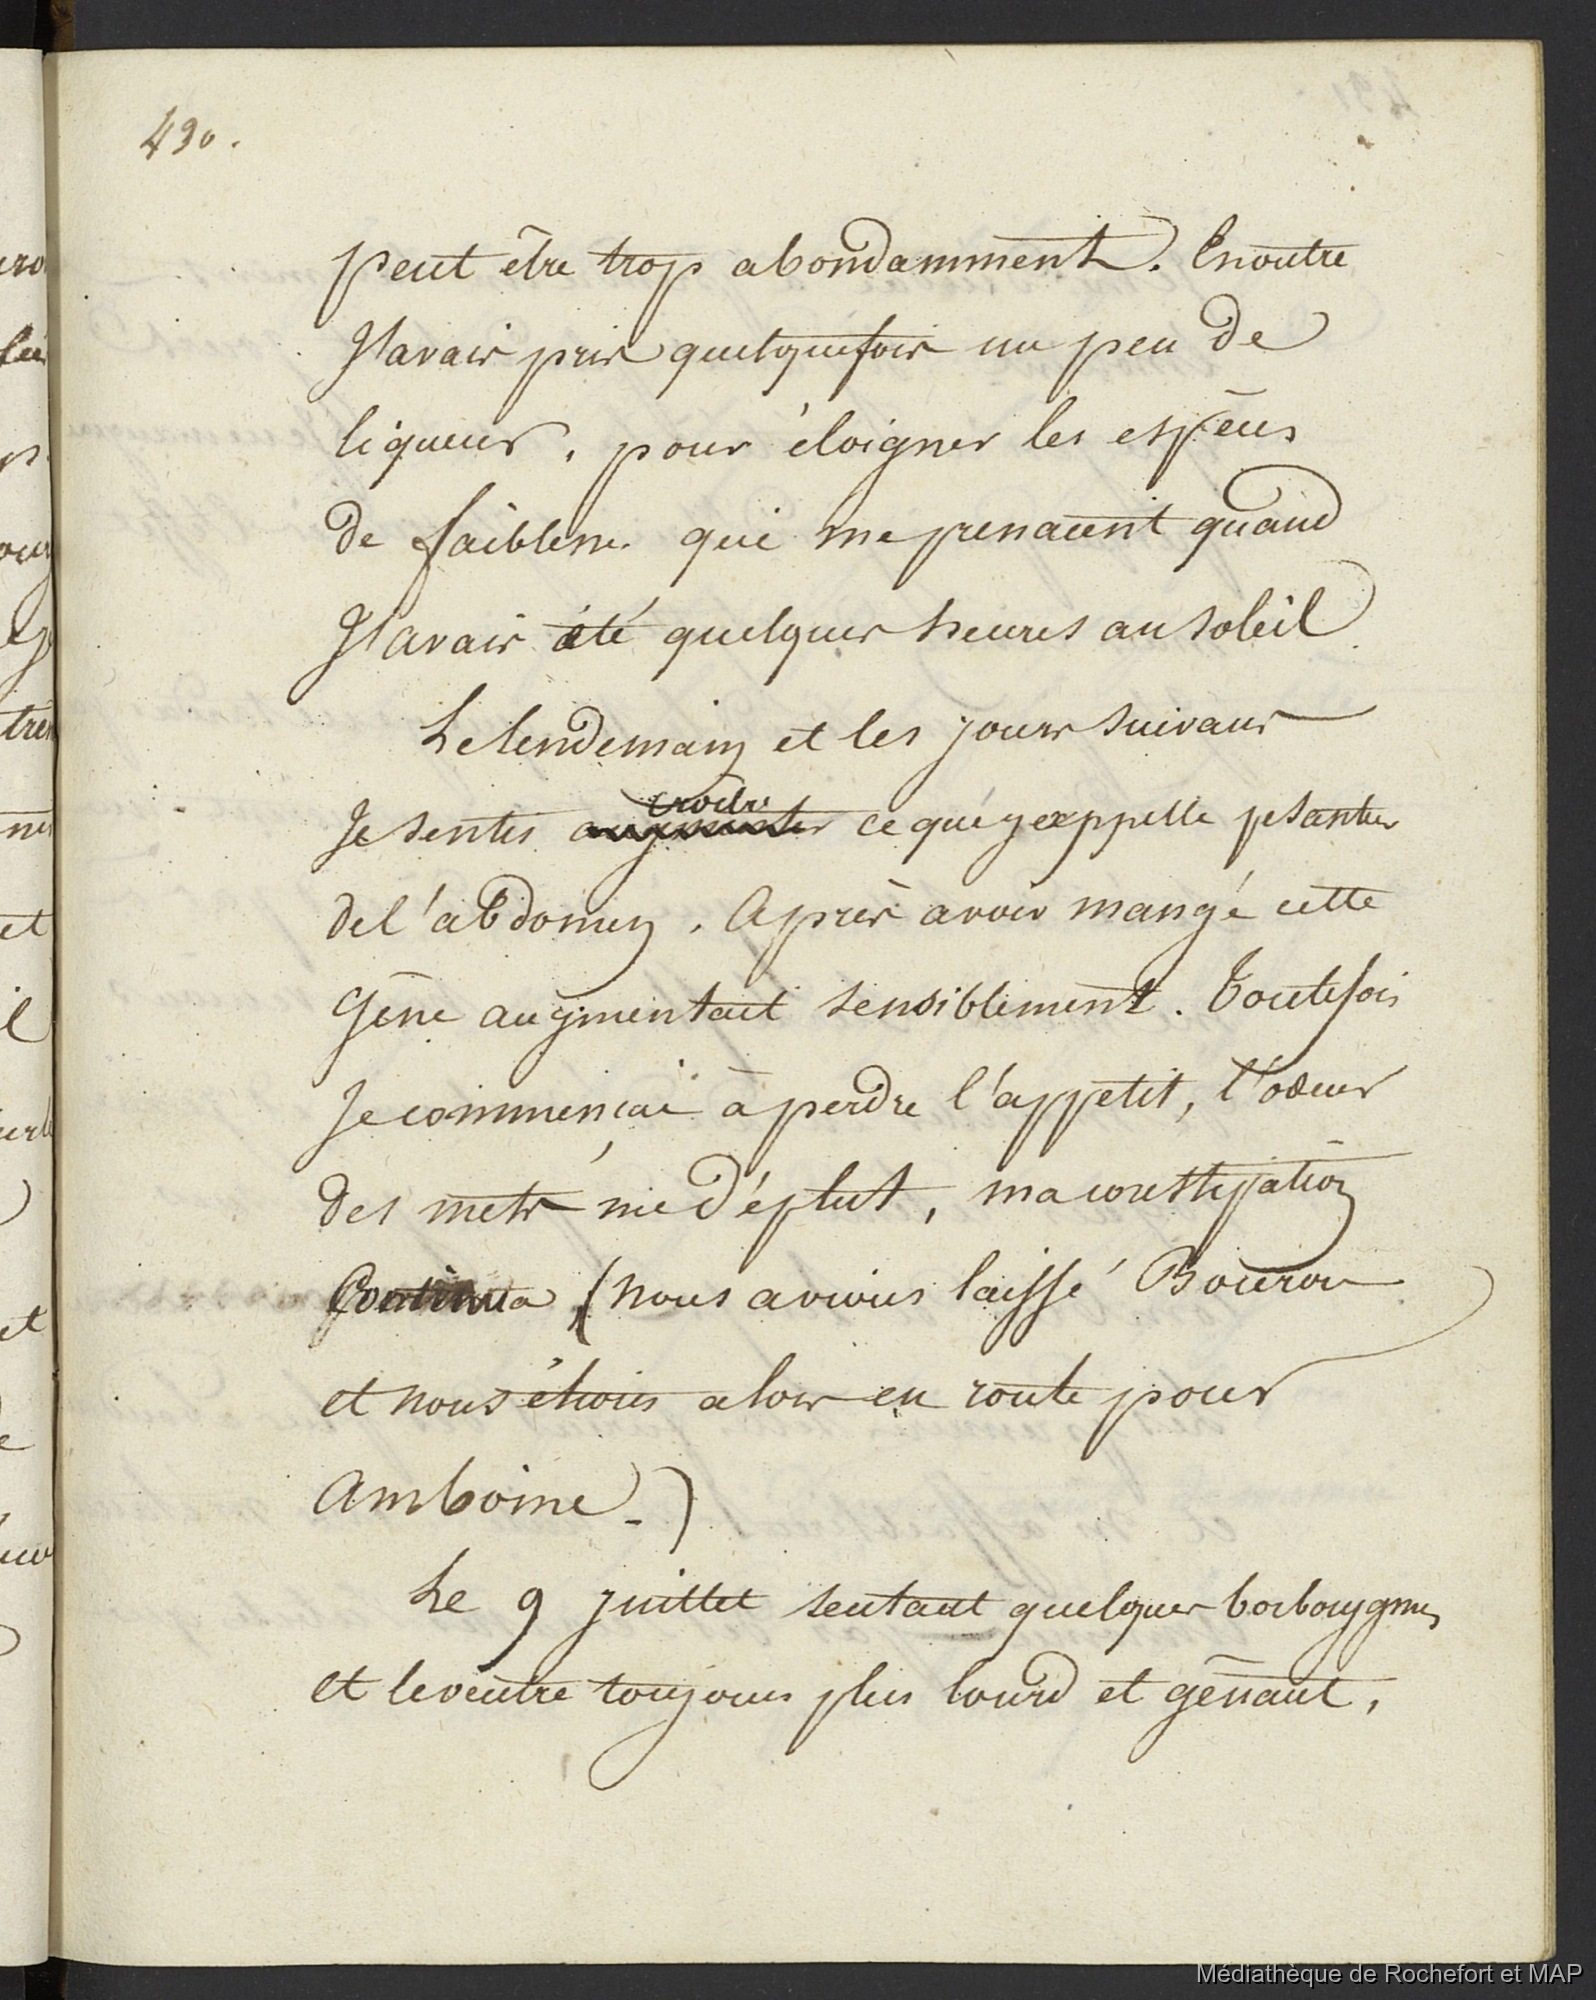 430.
peut être trop abondamment. En outre
J'avais pris quelquefois un peu de
liqueur, pour éloigner les espèces
de faiblesse qui me prenaient quand
J'avais été quelques heures au soleil
Le lendemain et les jours suivans
croître
Je sentis augmenter ce que j'exppelle pesanteur
de l'abdomen. Après avoir mangé cette
Gêne augmentait sensiblement. Toutefois
Je commençai à perdre l'appetit, l'odeur
des mets me déplut, ma constipation
Continua (nous avions laissé Bourou
et nous étions alors en route pour
Amboine_)
Le 9 juillet sentant quelques borborygmes
et le ventre toujours plus lourd et gênant,
Médiathèque de Rochefort et MAP